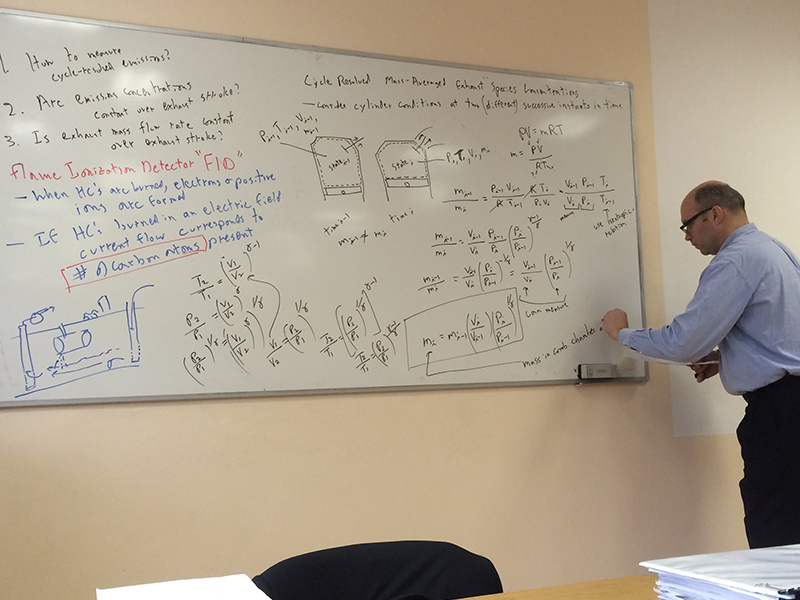 1. How to measure
cycle-resolved emissions?
2. Are emissions concentrations
constant over exhaust stroke?
3. Is exhaust mass flow rate constant
over exhaust stroke?
Flame Ionization Detector "FID"
- When HC's are burned, electrons & positive
ions are formed
- IF HC's burned in an electric field
current flow corresponds to
# of carbon atoms present
T₂/T₁ = (V₁/V₂)^(γ-1)
P₂/P₁ = (V₁/V₂)^γ
(P₂/P₁)^(1/γ) = (V₁/V₂)
V₁/V₂ = (P₂/P₁)^(1/γ)
Cycle Resolved Mass-Averaged Exhaust Species Concentrations
- Consider cylinder conditions at two (different) successive instants in time
Pᵢ₋₁, Tᵢ₋₁, Vᵢ₋₁, mᵢ₋₁
stateᵢ₋₁
stateᵢ
Pᵢ, Tᵢ, Vᵢ, mᵢ
timeᵢ₋₁
timeᵢ
mᵢ₋₁ ≠ mᵢ
PV = mRT
m = PV/RT
mᵢ₋₁/mᵢ = Pᵢ₋₁ Vᵢ₋₁/R Tᵢ₋₁ · R Tᵢ/Pᵢ Vᵢ = Vᵢ₋₁/Vᵢ Pᵢ₋₁/Pᵢ Tᵢ/Tᵢ₋₁
use isentropic
relation
mᵢ₋₁/mᵢ = Vᵢ₋₁/Vᵢ Pᵢ₋₁/Pᵢ (Pᵢ/Pᵢ₋₁)^((γ-1)/γ)
mᵢ₋₁/mᵢ = Vᵢ₋₁/Vᵢ (Pᵢ/Pᵢ₋₁)^(-1/γ) = Vᵢ₋₁/Vᵢ (Pᵢ₋₁/Pᵢ)^(1/γ)
can measure
mᵢ = mᵢ₋₁ (Vᵢ/Vᵢ₋₁) (Pᵢ/Pᵢ₋₁)^(1/γ)
mass in comb chamber